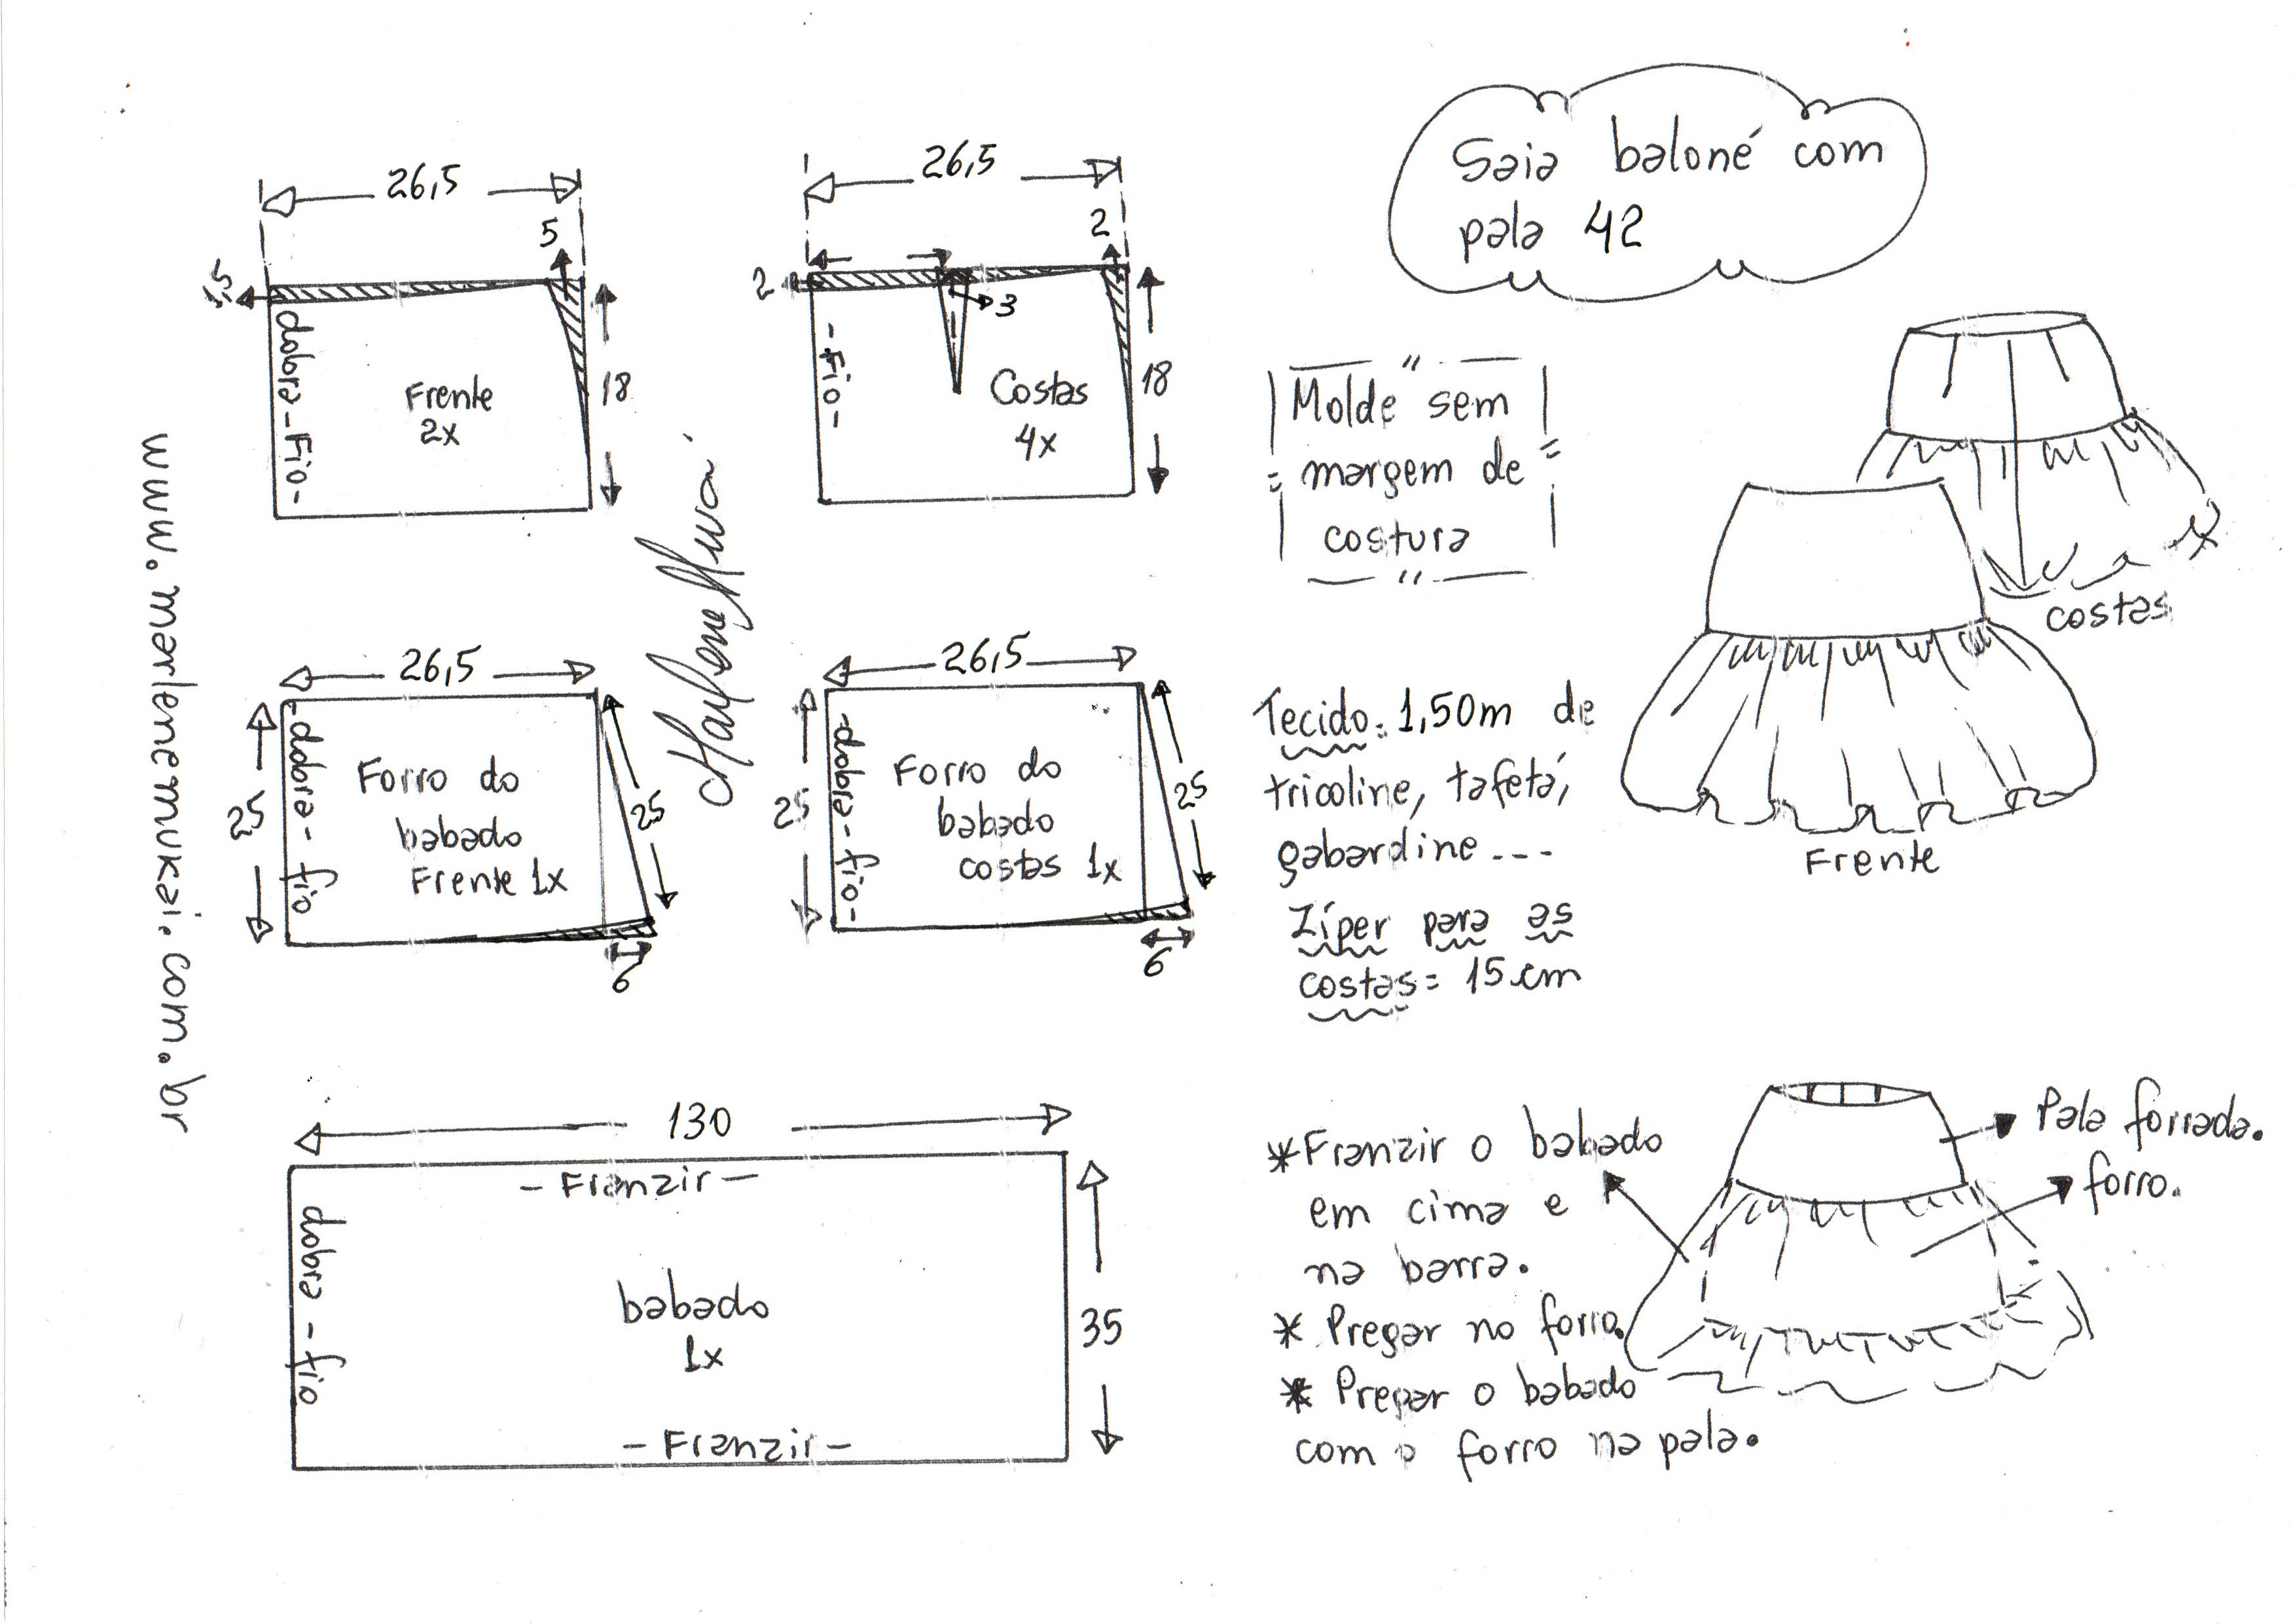 Saia baloné com
pala 42
26,5
5
1,5
dobra - Fio -
Frente
2x
18
26,5
2
2
3
- Fio -
Costas
4x
18
"Molde" sem
margem de
costura
costas
Frente
www.marlenemukai.com.br
26,5
25
dobra - fio
Forro do
babado
Frente 1x
25
6
26,5
25
- dobra - fio -
Forro do
babado
costas 1x
25
6
Tecido: 1,50m de
tricoline, tafetá,
gabardine ---
Zíper para as
costas = 15 cm
130
- Franzir -
dobra - fio
babado
1x
35
- Franzir -
* Franzir o babado
em cima e
na barra.
* Pregar no forro.
* Pregar o babado
com o forro na pala.
Pala forrada.
forro.